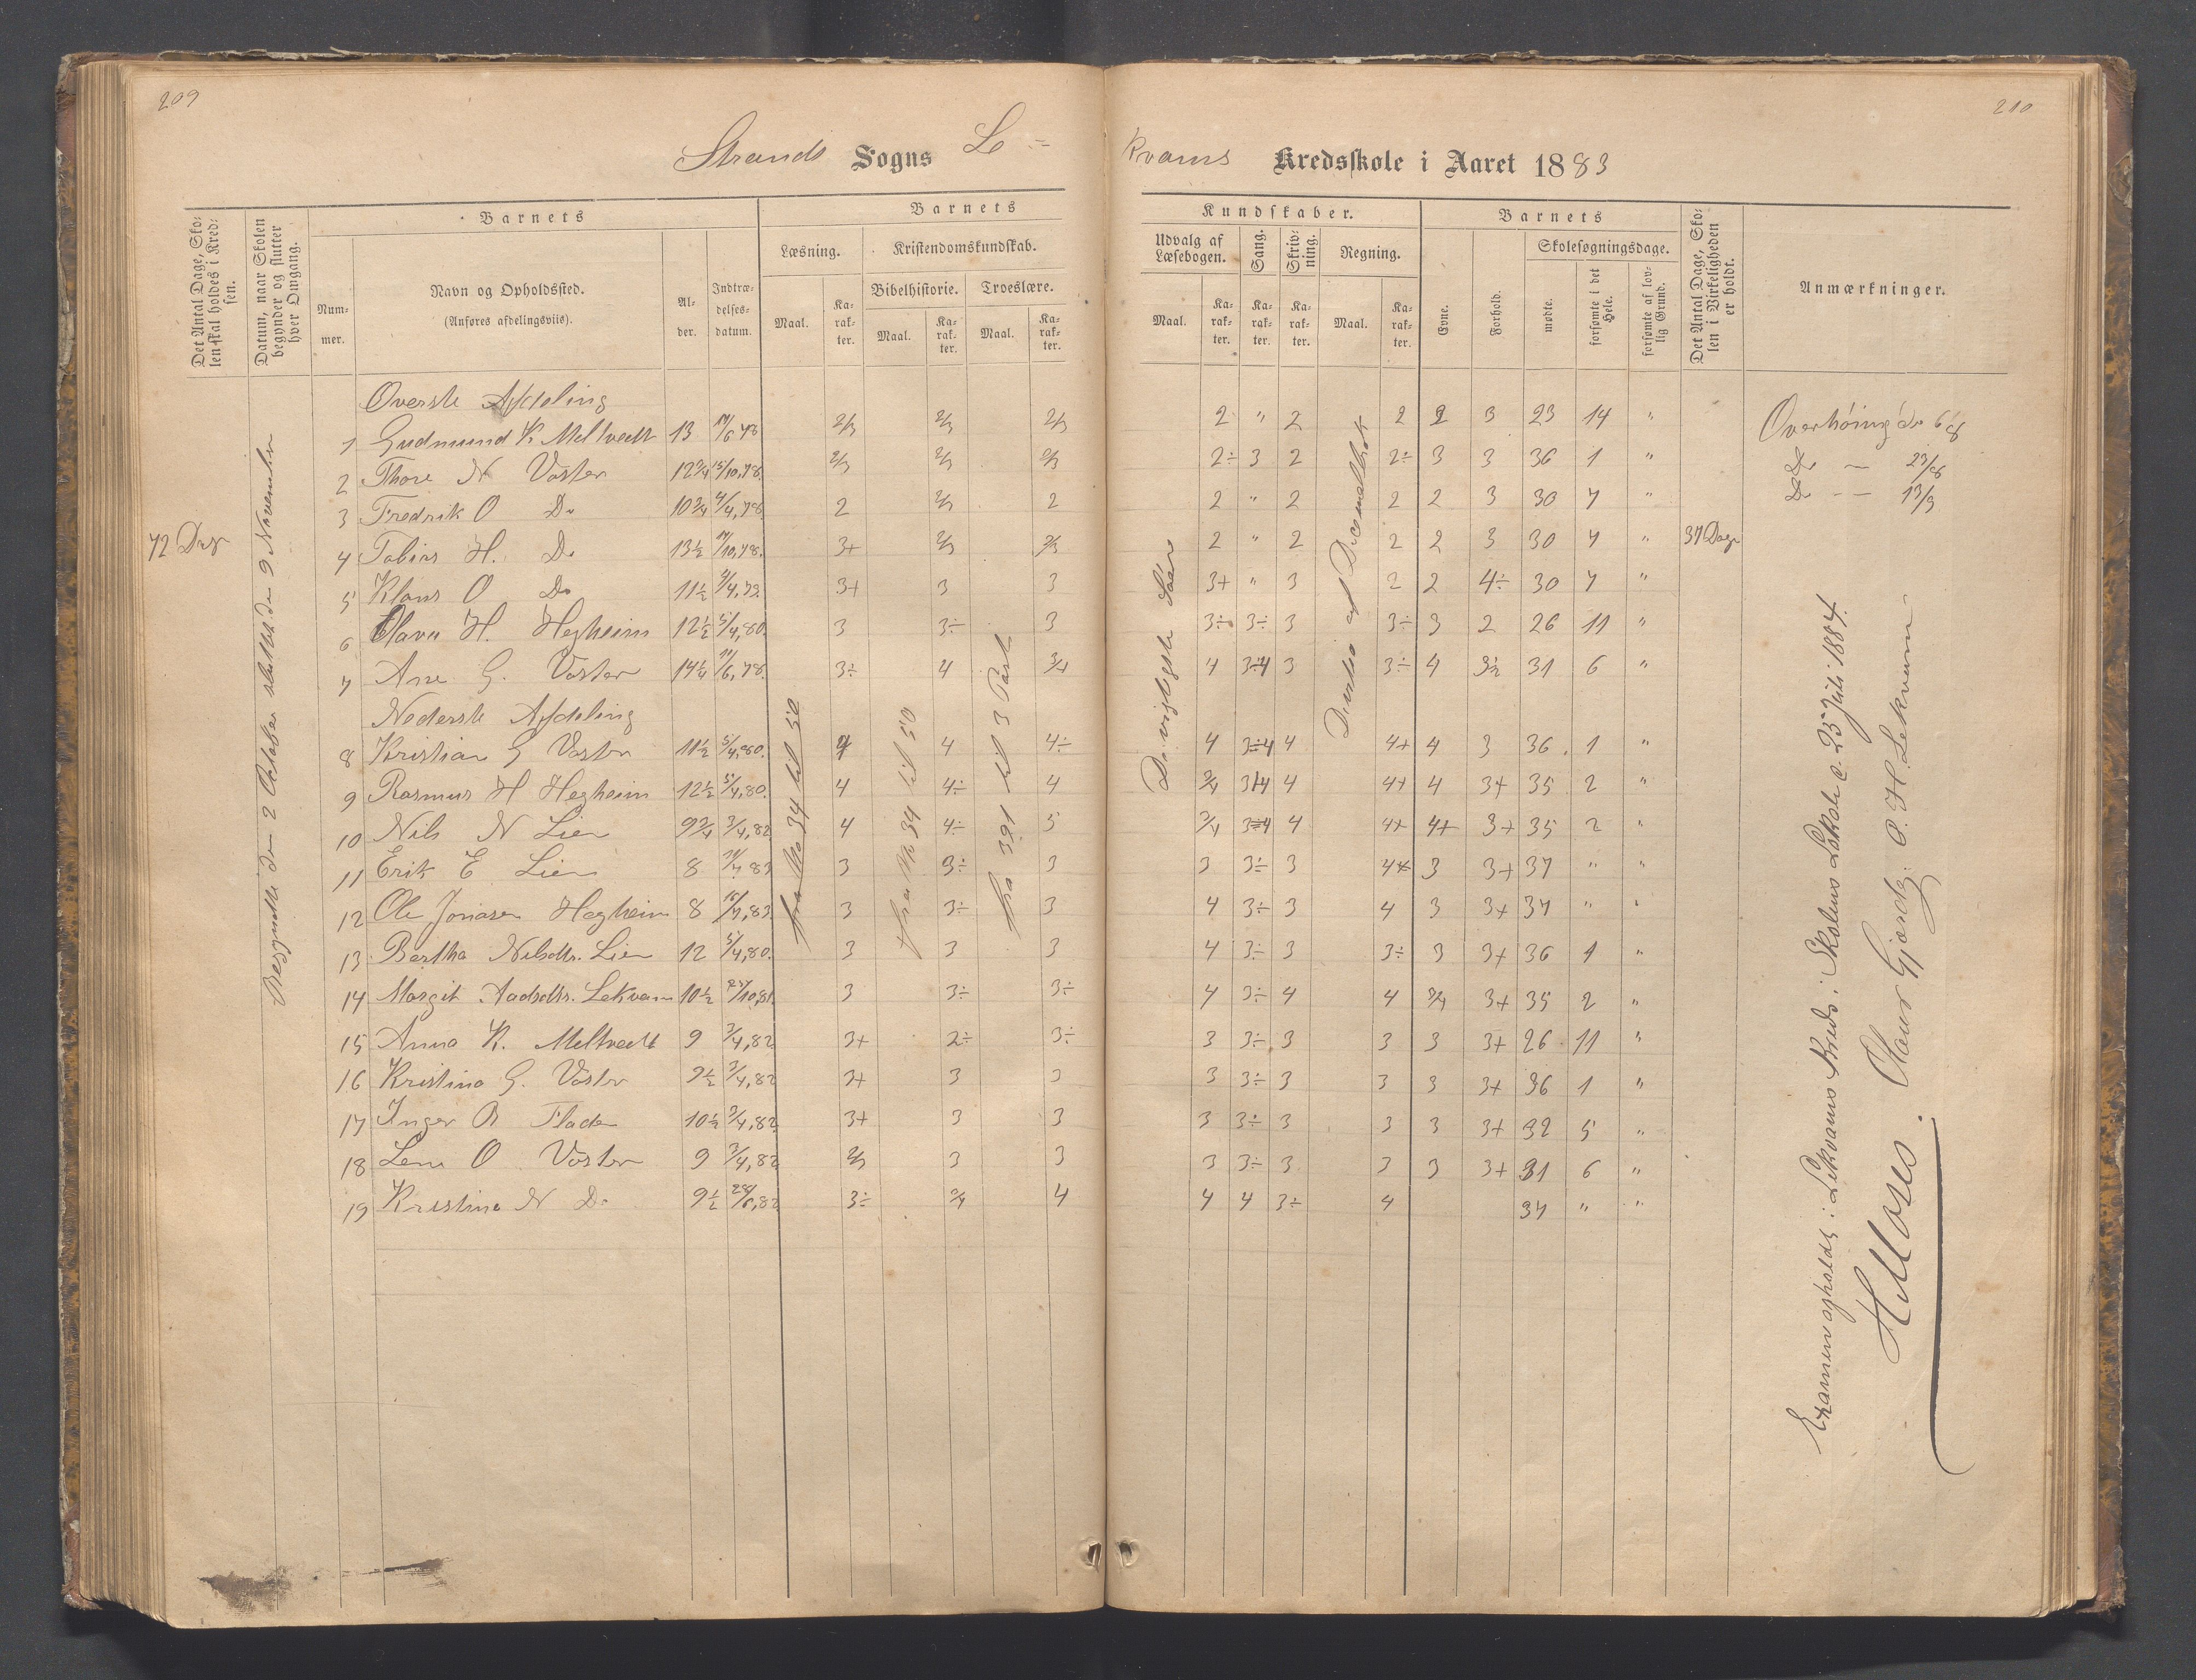 209
210
Strands Sogns Le=
Kvams Kredsskole i Aaret 1883
Det Antal Dage, Skolen skal holdes i Kredsen.
Datum, naar Skolen begynder og slutter hver Omgang.
Barnets
Nummer.
Navn og Opholdssted. (Anføres afdelingsviis).
Alder.
Indtrædelsesdatum.
Barnets
Læsning.
Kristendomskundskab.
Bibelhistorie. Troeslære.
Maal. Karakter. Maal. Karakter. Maal. Karakter.
Kundskaber.
Udvalg af Læsebogen. Sang. Skrivning. Regning.
Maal. Karakter. Karakter. Karakter. Maal. Karakter.
Barnets
Evne. Forhold.
Skolesøgningsdage.
mødte. forsømte i det Hele. forsømte af lovlig Grund.
Det Antal Dage, Skolen i Virkeligheden er holdt.
Anmærkninger.
72 Dage
Begyndte den 2 October sluttet den 9 November
fra No 34 til 50
fra No 34 til 50
fra 391 til 3 Part
De vigtigste Saare
37 Dage
Overste Afdeling
1 Gudmund K Meltvedt 13 11/6 78 2/3 2/3 2/3 2 " 2 2 2 3 23 14 " Overhøring d. 6/8
2 Thore N Voster 12 3/4 15/10,78. 2/3 2/3 2/3 2÷ 3 2 2÷ 3 3 36 1 " Do — 23/8
3 Fredrik O Do 10 3/4 4/4,78. 2 2/3 2 2 " 2 2 2 3 30 7 " Do — 13/9
4 Tobias H. Do 13 1/2 17/10,78. 3+ 2/3 2/3 2 " 2 2 2 3 30 7 "
5 Klaus O Do 11 1/2 4/4,79. 3+ 3 3 3+ " 3 2 2 4÷ 30 7 "
6 Olava H. Hegheim 12 1/2 5/4,80. 3 3÷ 3 3÷ 3÷ 3 3÷ 3 2 26 11 "
7 Ane G. Voster 14 1/4 11/6,78. 3÷ 4 3/4 4 3÷4 3 3÷ 4 3 1/2 31 6 "
Nederste Afdeling
8 Kristian G Voster 11 1/2 5/4,80. 4 4 4÷ 4 3÷4 4 4+ 4 3 36 1 "
9 Rasmus H Hegheim 12 1/2 5/4,80. 4 4÷ 4 3/4 3/4 4 4+ 4 3+ 35 2 "
10 Nils N Lien 9 3/4 3/4,82 4 4÷ 5 3/4 3÷4 4 4+ 4+ 3+ 35 2 "
11 Erik E Lien 8 3 3÷ 3 3 3÷ 3 4+ 3 3+ 37 " "
12 Ole Jonasen Hegheim 8 16/7,83 3 3÷ 3 4 3÷ 3 4 3 3+ 37 " "
13 Bertha Nilsdtr. Lien 12 5/4,80. 3 3 3 4 3÷ 3 3÷ 3 3+ 36 1 "
14 Margit Aadsdtr. Lekvam 10 1/2 24/10,81 3 3÷ 3÷ 4 3÷ 4 4 3/4 3+ 35 2 "
15 Anna K. Meltvedt 9 3/4,82 3+ 2÷ 3÷ 3 3÷ 3 3 3 3+ 26 11 "
16 Kristina G. Voster 9 1/2 3/4,82 3+ 3 3 3 3÷ 3 3 3 3+ 36 1 "
17 Inger B Fladen 10 1/2 3/4,82 3+ 3 3 3 3÷ 3 3 3 3+ 32 5 "
18 Lene O Voster 9 3/4,82 2/3 3 3 3 3÷ 3 3 3 3+ 31 6 "
19 Kristina N Do 9 1/2 28/6,82 3÷ 3/4 4 4 4 3÷ 4 37 " "
Examen afholdt i Lekvams Kreds i Skolens Lokale d. 25 Juli 1884.
Olaus Gjærde. O. H. Lekvam
H Moses.